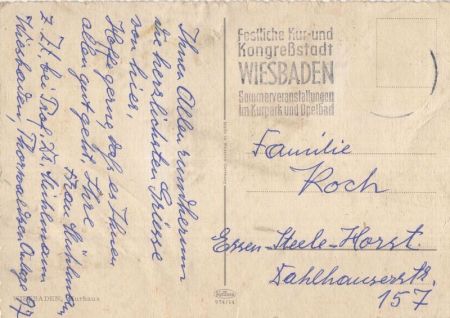 Ihnen Allen rundherum
die herzlichsten Grüsse
von hier,
Hoffe gerne, daß es Ihnen
allen gut geht, Ihre
Frau Mühlmann
z. Zt. bei Prof. Dr. Mühlmann
Wiesbaden, Thorwaldsen Anlage 97
WIESBADEN, Kurhaus
Festliche Kur- und
Kongreßstadt
WIESBADEN
Sommerveranstaltungen
im Kurpark und Opelbad
Familie
Koch
Essen-Steele-Horst.
Dahlhauserstr.
157